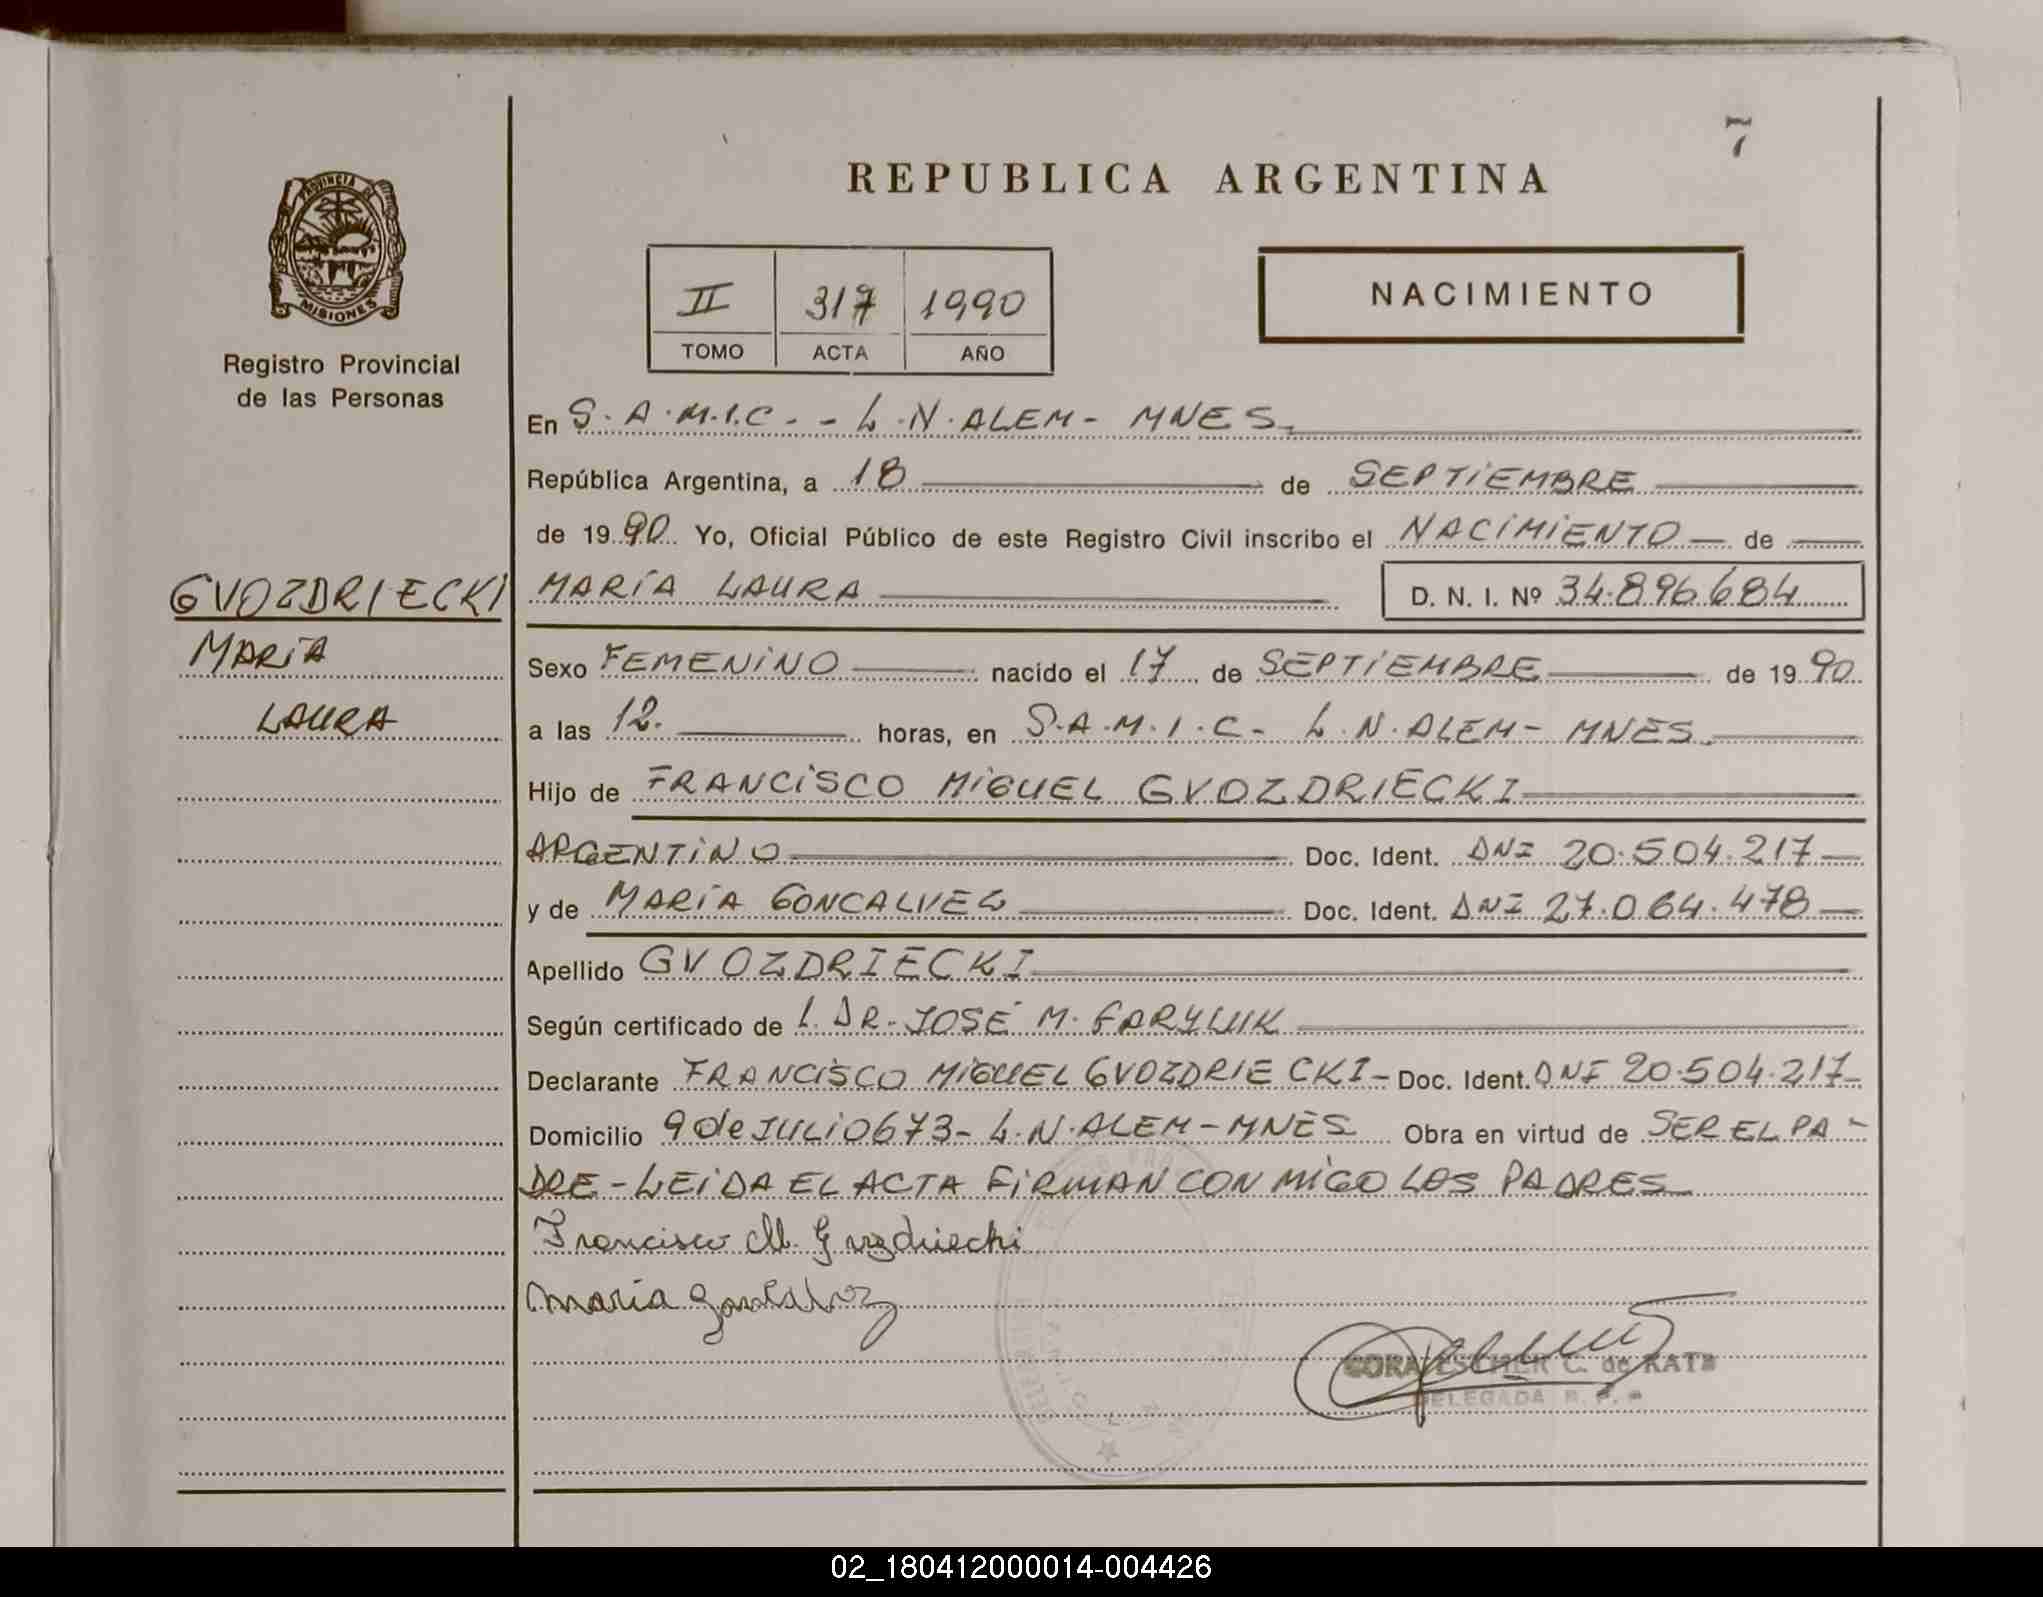 7
REPUBLICA ARGENTINA
PROVINCIA DE
MISIONES
Registro Provincial
de las Personas
II 317 1990
TOMO ACTA AÑO
NACIMIENTO
GVOZDRIECKI
MARÍA
LAURA
En S.A.M.I.C. - L.N. ALEM - MNES.
República Argentina, a 18 de SEPTIEMBRE
de 1990 Yo, Oficial Público de este Registro Civil inscribo el NACIMIENTO de
MARÍA LAURA D. N. I. Nº 34.896.684
Sexo FEMENINO nacido el 17 de SEPTIEMBRE de 1990
a las 12. horas, en S.A.M.I.C - L.N. ALEM - MNES.
Hijo de FRANCISCO MIGUEL GVOZDRIECKI
ARGENTINO Doc. Ident. DNI 20.504.217
y de MARÍA GONCALVEZ Doc. Ident. DNI 27.064.478
Apellido GVOZDRIECKI
Según certificado de L. DR. JOSÉ M. FARYLUK
Declarante FRANCISCO MIGUEL GVOZDRIECKI - Doc. Ident. DNI 20.504.217
Domicilio 9 de JULIO 673 - L.N. ALEM - MNES Obra en virtud de SER EL PA-
DRE - LEIDA EL ACTA FIRMAN CONMIGO LOS PADRES
Francisco M. Gvozdriecki
Maria Goncalvez
CORA ESTHER C. de KATZ
DELEGADA R. P. P.
02_180412000014-004426